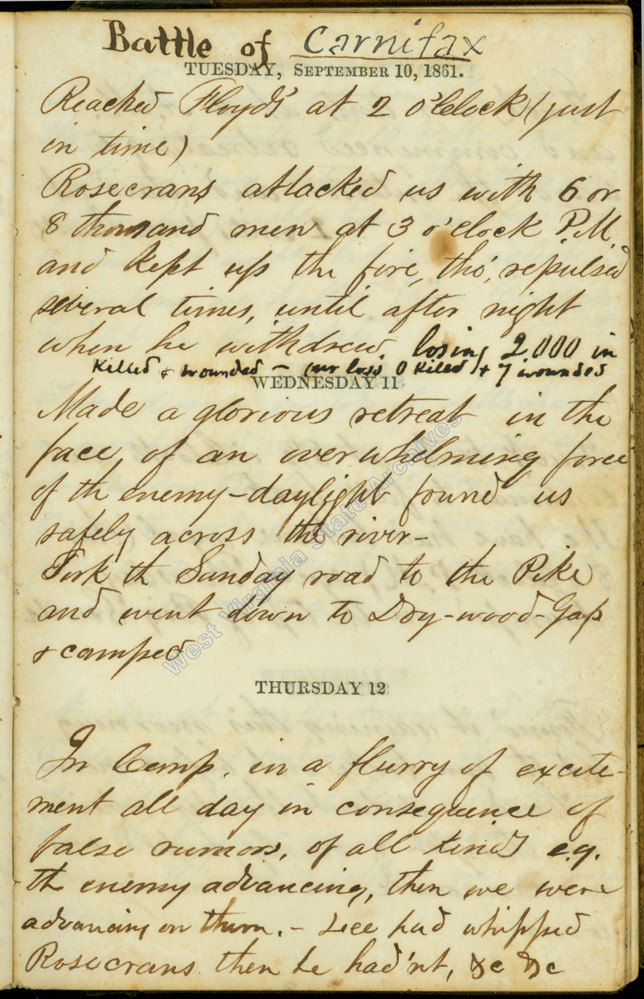 Battle of Carnifax
TUESDAY, SEPTEMBER 10, 1861.
Reached Floyds' at 2 o'clock (just
in time)
Rosecrans attacked us with 6 or
8 thousand men at 3 o'clock P.M.
and kept up the fire, tho', repulsed
several times, until after night
when he withdrew, losing 2,000 in
killed & wounded – our loss 0 killed & 7 wounded
WEDNESDAY 11
Made a glorious retreat in the
face of an overwhelming force
of th enemy – daylight found us
safely across the river –
Took th Sunday road to the Pike
and went down to Dog-wood-Gap
& camped
THURSDAY 12
In Camp, in a flurry of excite-
ment all day in consequence of
false rumors, of all kinds e.g.
th enemy advancing, then we were
advancing on them. – Lee had whipped
Rosecrans then he had'nt, &c &c
West Virginia State Archives